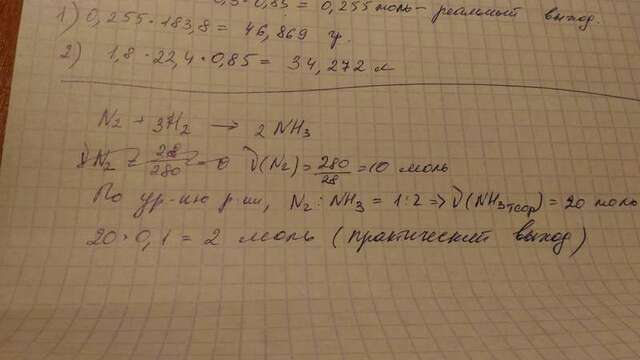 0,3 · 0,85 = 0,255 моль - реальный выход.
1) 0,255 · 183,8 = 46,869 гр.
2) 1,8 · 22,4 · 0,85 = 34,272 л
N2 + 3H2 → 2 NH3
ν(N2) = 280/28 = 10 моль
По ур-ию р-ии, N2 : NH3 = 1:2 => ν(NH3 теор) = 20 моль
20 · 0,1 = 2 моль (практический выход)